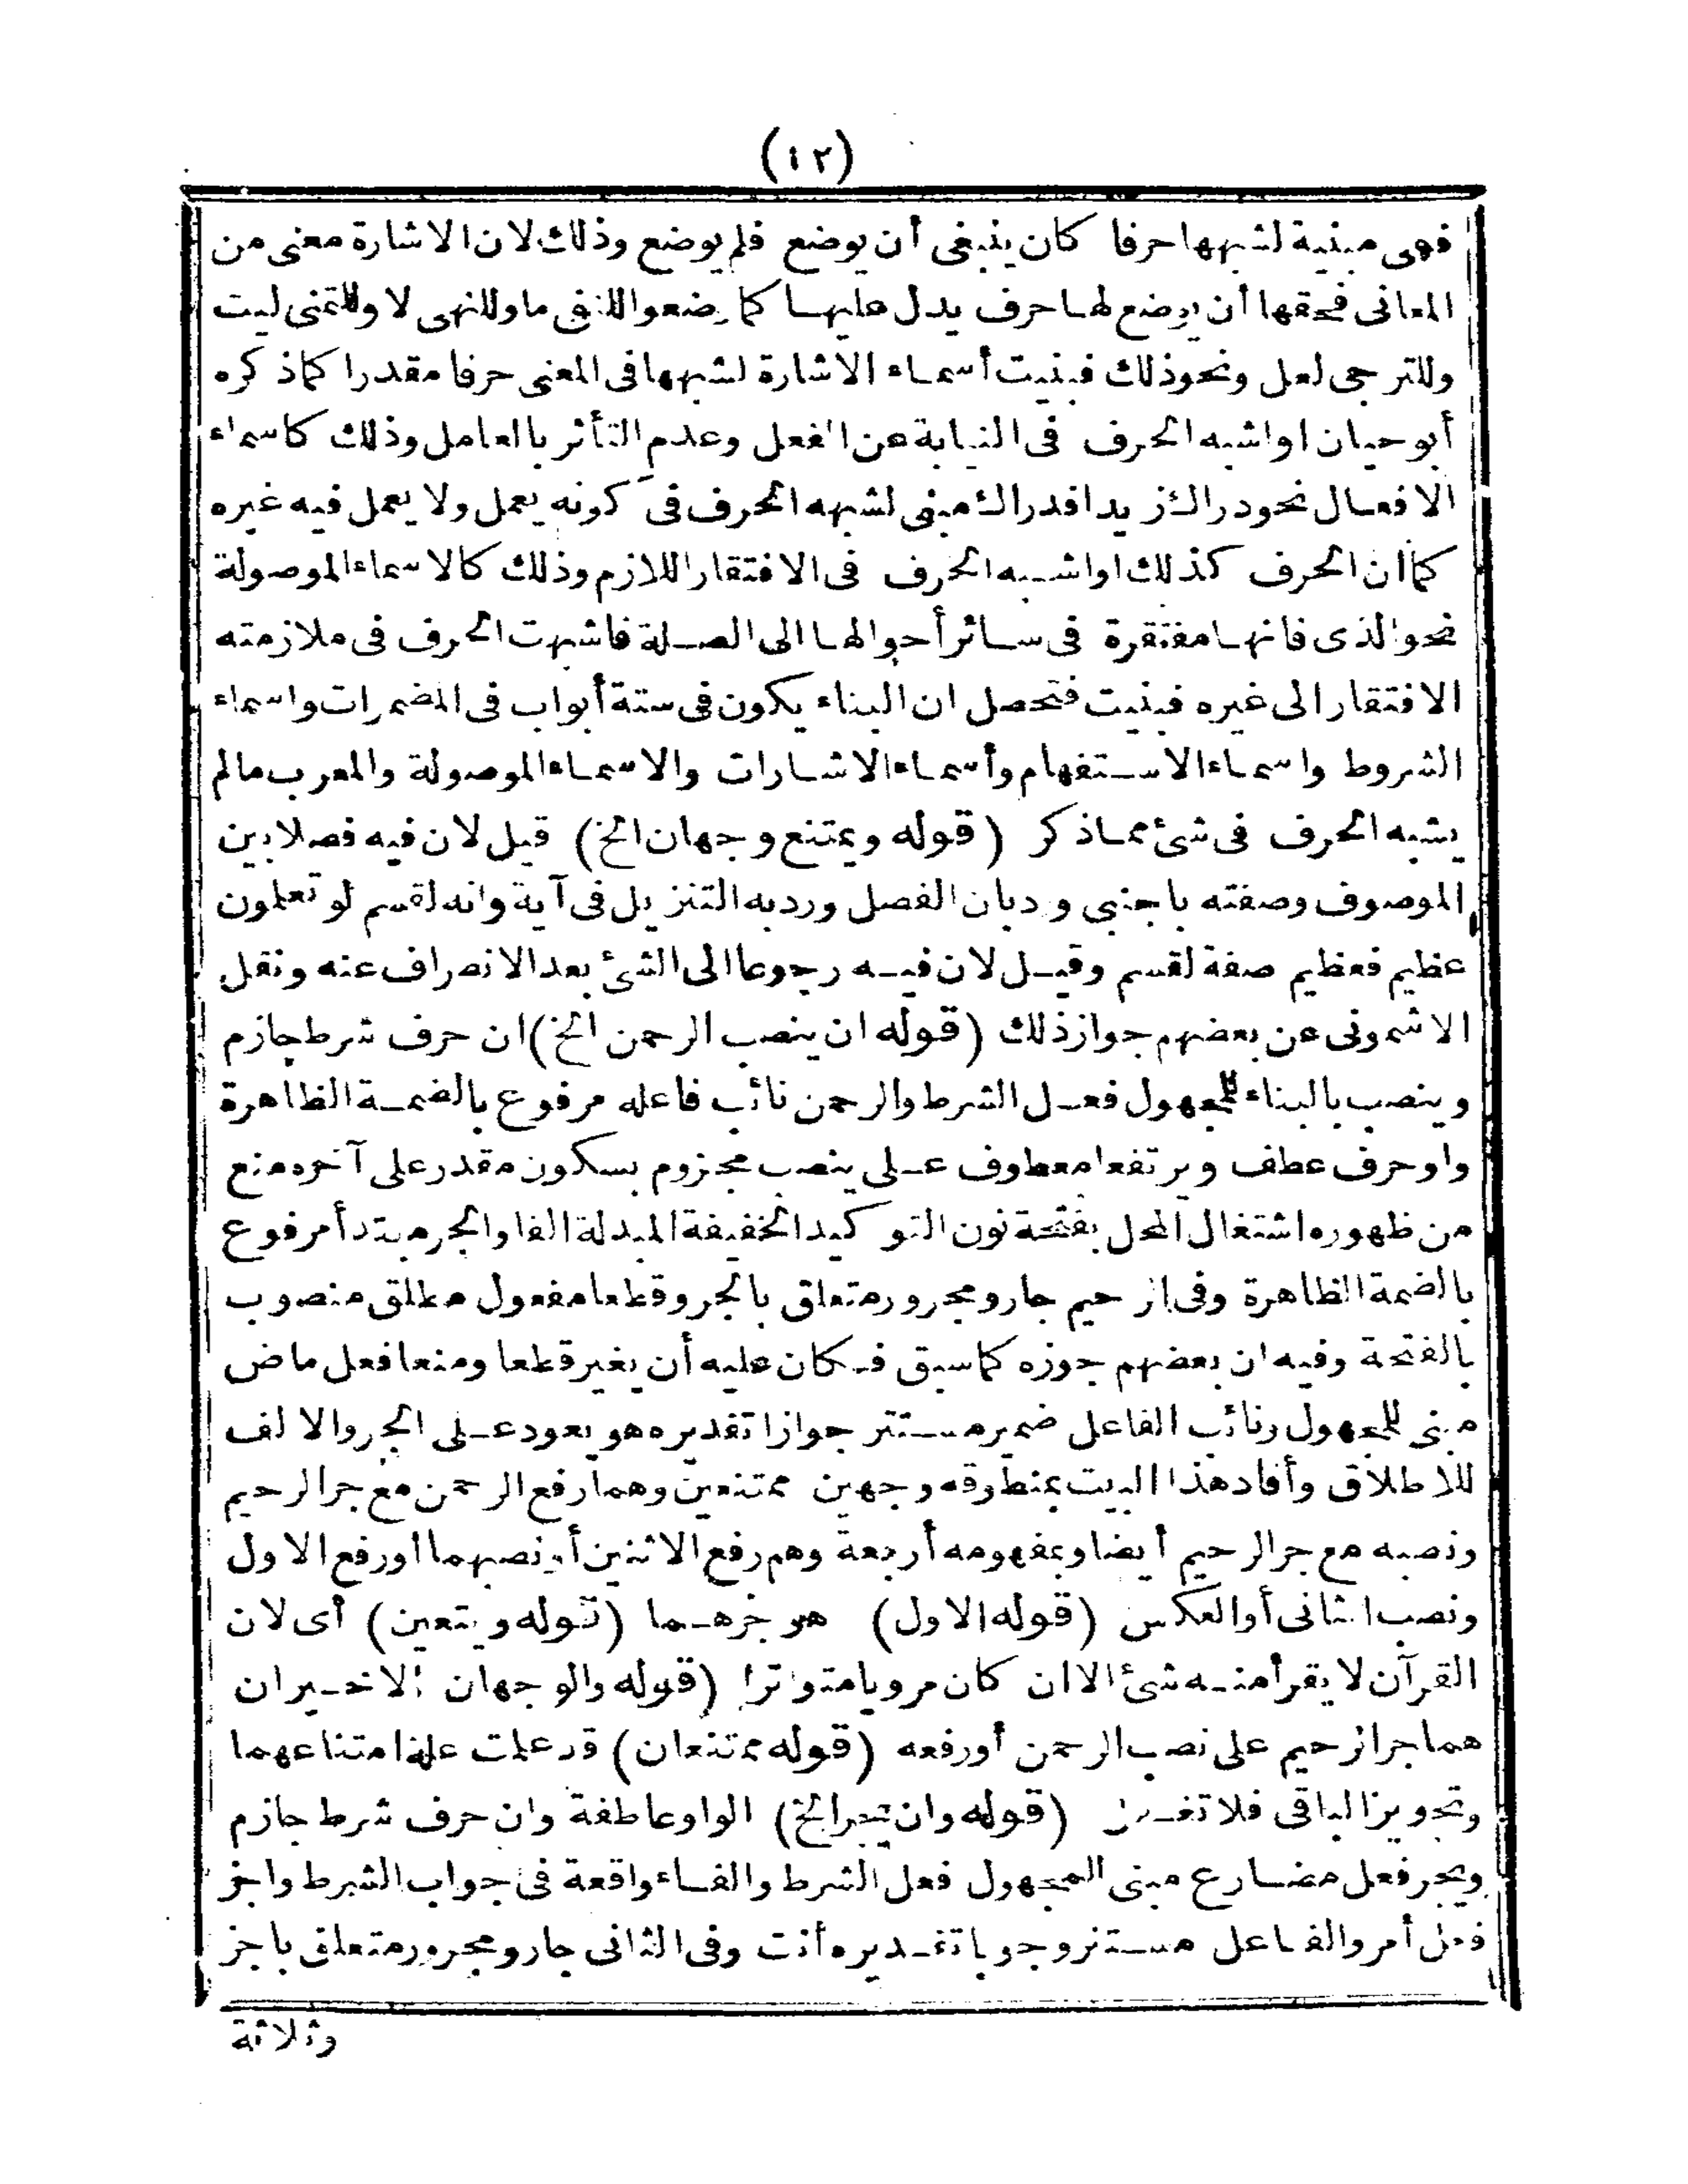 (١٢)
فهى مبنية لشبهها حرفا كان ينبغى أن يوضع فلم يوضع وذلك لان الاشارة معنى من
المعانى فحقها أن يوضع لها حرف يدل عليها كما وضعوا للنفى ما وللنهى لا وللتمنى ليت
وللترجى لعل ونحو ذلك فبنيت أسماء الاشارة لشبهها فى المعنى حرفا مقدرا كما ذكره
أبو حيان او اشبه الحرف فى النيابة عن الفعل وعدم التأثر بالعامل وذلك كاسماء
الافعال نحو دراك زيدا فدراك مبنى لشبهه الحرف فى كونه يعمل ولا يعمل فيه غيره
كما ان الحرف كذلك او اشبه الحرف فى الافتقار اللازم وذلك كالاسماء الموصولة
نحو الذى فانها مفتقرة فى سائر أحوالها الى الصلة فاشبهت الحرف فى ملازمته
الافتقار الى غيره فبنيت فتحصل ان البناء يكون فى ستة أبواب فى المضمرات واسماء
الشروط واسماء الاستفهام وأسماء الاشارات والاسماء الموصولة والمعرب مالم
يشبه الحرف فى شئ مما ذكر (قوله ويمتنع وجهان الخ) قيل لان فيه فصلا بين
الموصوف وصفته باجنبى ورد بان الفصل ورد به التنزيل فى آية وانه لقسم لو تعلمون
عظيم فعظيم صفة لقسم وقيل لان فيه رجوعا الى الشئ بعد الانصراف عنه ونقل
الاشمونى عن بعضهم جواز ذلك (قوله ان ينصب الرحمن الخ) ان حرف شرط جازم
وينصب بالبناء للمجهول فعل الشرط والرحمن نائب فاعله مرفوع بالضمة الظاهرة
واو حرف عطف ويرتفعا معطوف على ينصب مجزوم بسكون مقدر على آخره منع
من ظهوره اشتغال المحل بفتحة نون التوكيد الخفيفة المبدلة الفا والجر مبتدأ مرفوع
بالضمة الظاهرة وفى الرحيم جار ومجرور متعلق بالجر وقطعا مفعول مطلق منصوب
بالفتحة وفيه ان بعضهم جوزه كما سبق فكان عليه أن يغير قطعا ومنعا فعل ماض
مبنى للمجهول ونائب الفاعل ضمير مستتر جوازا تقديره هو يعود على الجر والالف
للاطلاق وأفاد هذا البيت بمنطوقه وجهين ممتنعين وهما رفع الرحمن مع جر الرحيم
ونصبه مع جر الرحيم أيضا وبمفهومه أربعة وهم رفع الاثنين أو نصبهما او رفع الاول
ونصب الثانى أو العكس (قوله الاول) هو جرهما (قوله ويتعين) أى لان
القرآن لا يقرأ منه شئ الا ان كان مرويا متواترا (قوله والوجهان الاخيران
هما جر الرحيم على نصب الرحمن أو رفعه (قوله ممتنعان) قد علمت علة امتناعهما
وتجويز الباقى فلا تغفل (قوله وان يجر الخ) الواو عاطفة وان حرف شرط جازم
ويجر فعل مضارع مبنى للمجهول فعل الشرط والفاء واقعة فى جواب الشرط واجز
فعل أمر والفاعل مستتر وجوبا تقديره أنت وفى الثانى جار ومجرور متعلق باجز
وثلاثة